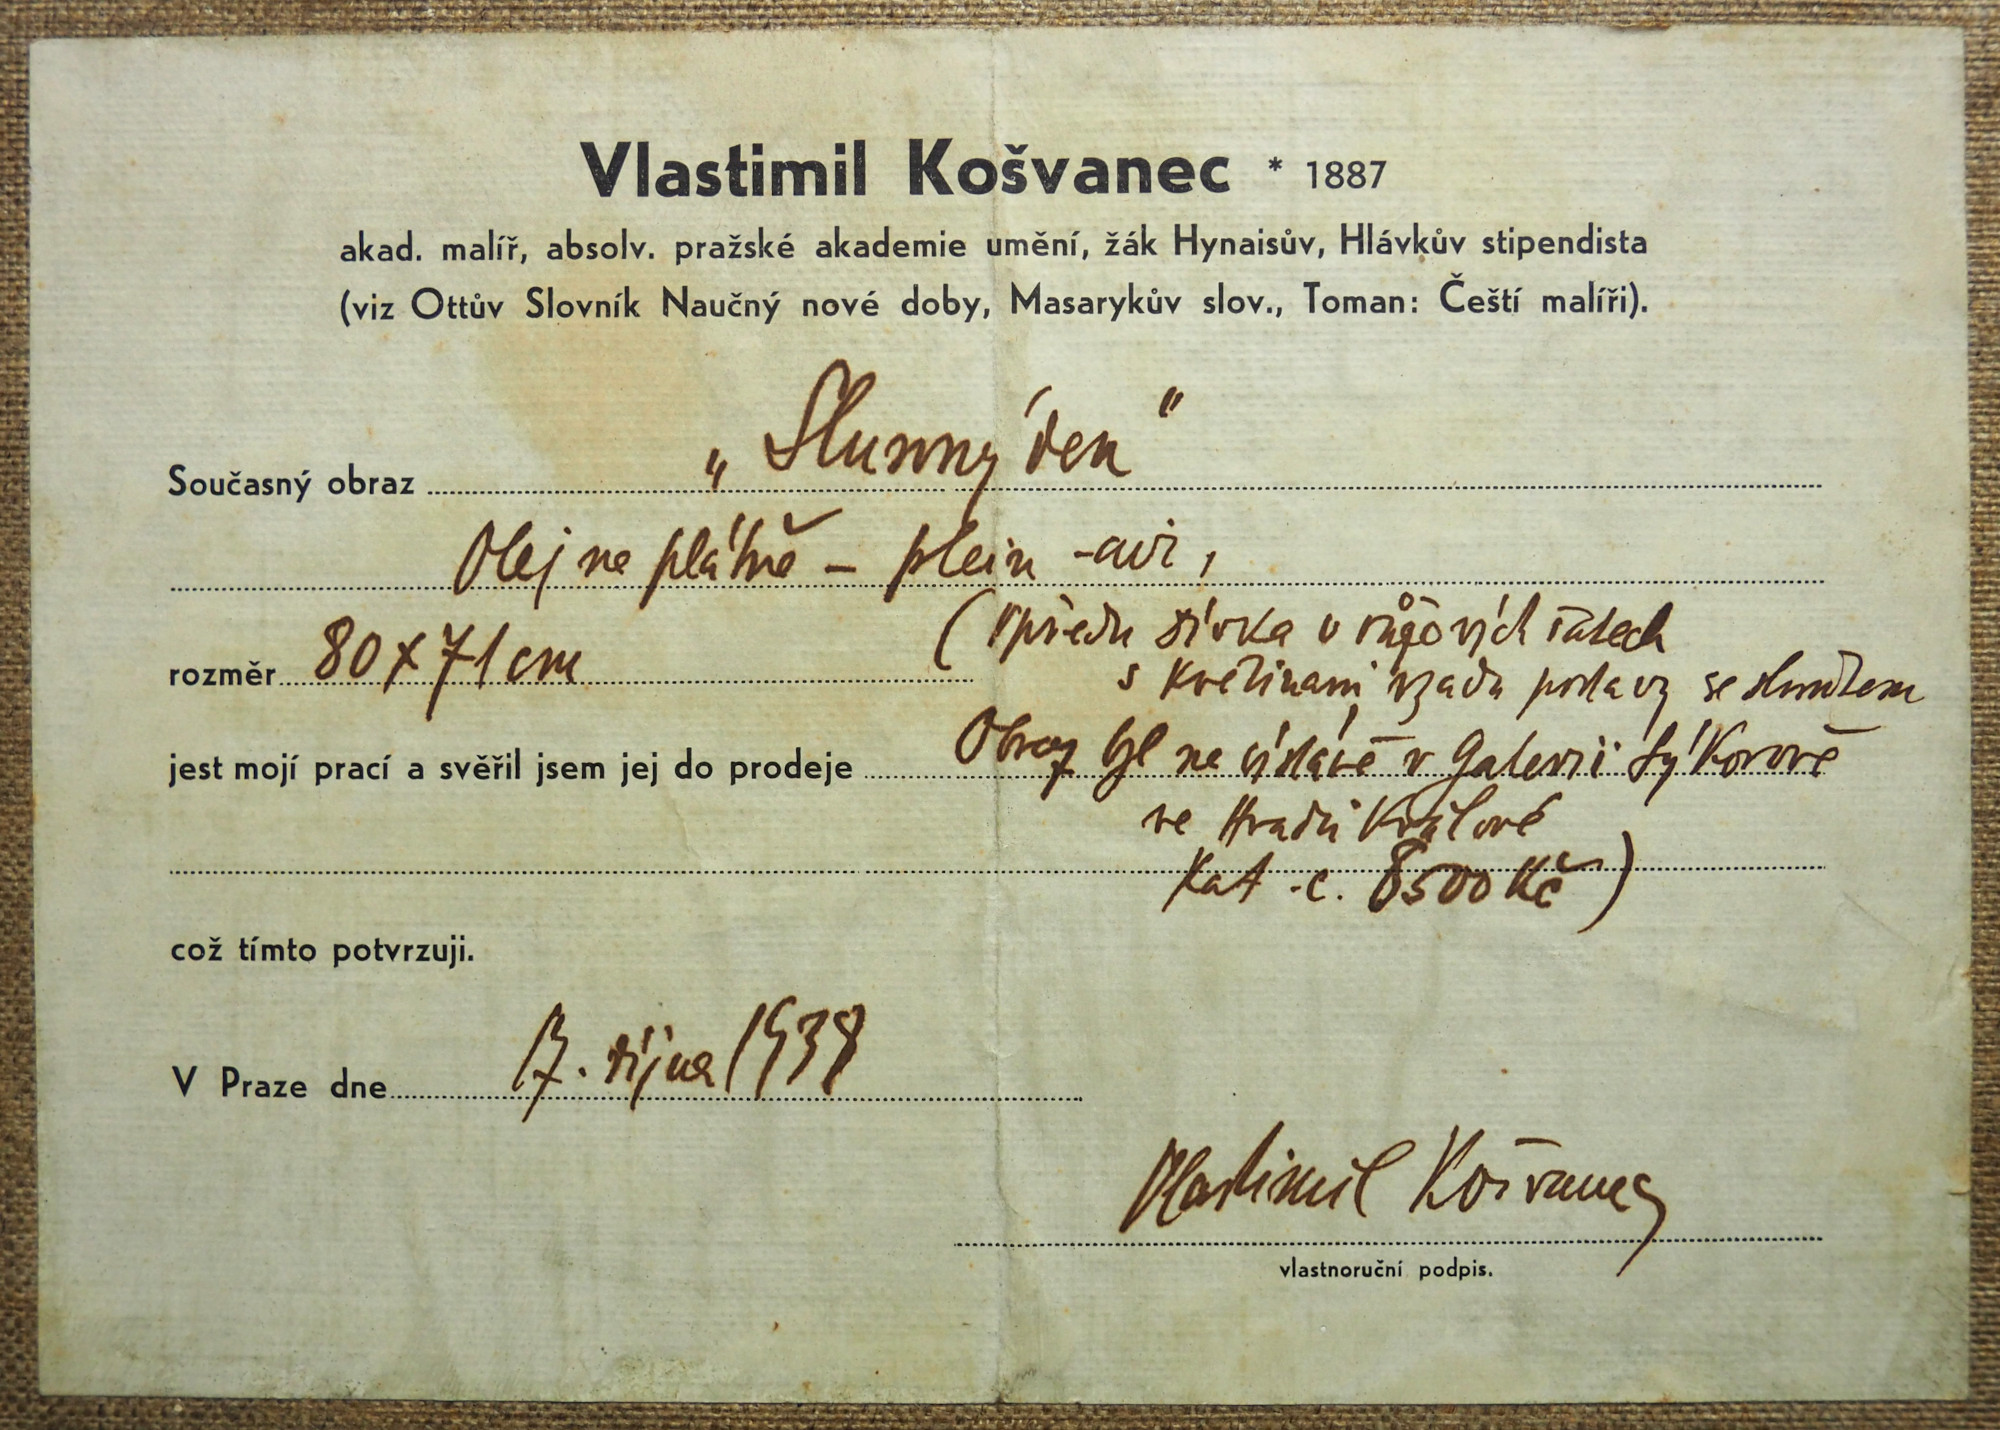 Vlastimil Košvanec * 1887
akad. malíř, absolv. pražské akademie umění, žák Hynaisův, Hlávkův stipendista
(viz Ottův Slovník Naučný nové doby, Masarykův slov., Toman: Čeští malíři).
Současný obraz „Slunný den"
Olej na plátně – plein -air,
rozměr 80 x 71 cm
(Vpředu dívka v růžových šatech
s květinami vzadu postavy se
jest mojí prací a svěřil jsem jej do prodeje Obraz byl na výstavě v Galerii Sýkorově
ve Hradci Králové
Kat .c. 8500 Kč)
což tímto potvrzuji.
V Praze dne 17. října 1938
Vlastimil Košvanec
vlastnoruční podpis.